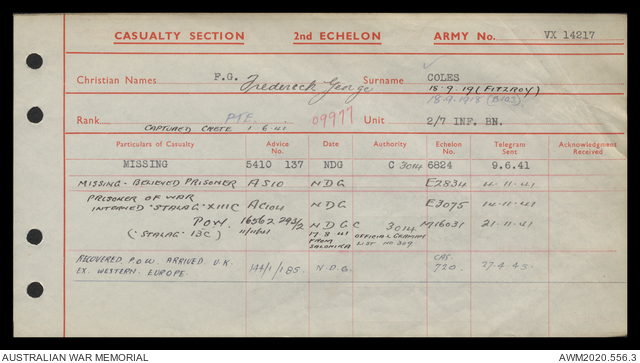 CASUALTY SECTION 2nd ECHELON ARMY No. VX 14217
Christian Names F.G. Frederick George Surname COLES
18-9-19 (FITZROY)
18.9.1918 (BIOS)
Rank PTE. 09977 Unit 2/7 INF. BN.
CAPTURED CRETE 1-6-41
Particulars of Casualty Advice No. Date Authority Echelon No. Telegram Sent Acknowledgment Received
MISSING 5410 137 NDG C 3014 6824 9.6.41
MISSING - BELIEVED PRISONER A510 NDG E2834 14-11-41
PRISONER OF WAR
INTERNED "STALAG" XIIIC AC104 NDG E3075 14-11-41
P.O.W. 16562 293/2 NDG C 3014 M16031 21-11-41
("STALAG" 13C) 11/11/41 17-8-41 OFFICIAL GERMAN
FROM LIST NO 309
SALONIKA
RECOVERED P.O.W. ARRIVED U.K. 144/1/185 N.D.G. CAS. 27.4.45
EX. WESTERN EUROPE. 720
AUSTRALIAN WAR MEMORIAL AWM2020.556.3